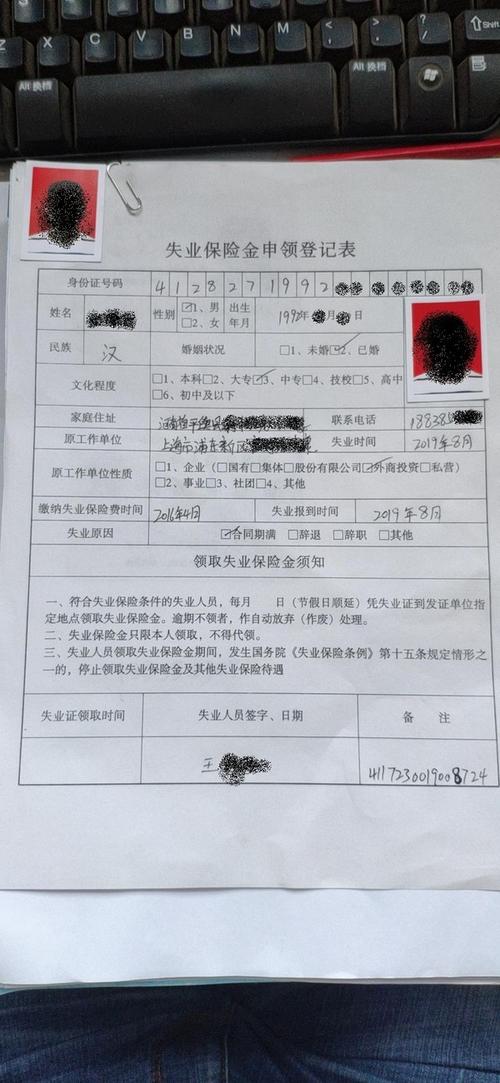 Z X C V B N M < , > . ? / Shift
Alt 换档 Alt 换档
失业保险金申领登记表
身份证号码 4 1 2 8 2 7 1 9 9 2
姓名 性别 ☑1、男 □2、女 出生年月 1992年 月 日
民族 汉 婚姻状况 □1、未婚☑2、已婚
文化程度 □1、本科□2、大专☑3、中专□4、技校□5、高中
□6、初中及以下
家庭住址 联系电话 188385
原工作单位 上海市浦东新区 失业时间 2019年8月
原工作单位性质 □1、企业（□国有□集体□股份有限公司☑外商投资□私营）
□2、事业□3、社团□4、其他
缴纳失业保险费时间 2016年4月 失业报到时间 2019年8月
失业原因 ☑合同期满 □辞退 □辞职 □其他
领取失业保险金须知
一、符合失业保险条件的失业人员，每月 日（节假日顺延）凭失业证到发证单位指
定地点领取失业保险金。逾期不领者，作自动放弃（作废）处理。
二、失业保险金只限本人领取，不得代领。
三、失业人员领取失业保险金期间，发生国务院《失业保险条例》第十五条规定情形之
一的，停止领取失业保险金及其他失业保险待遇
失业证领取时间 失业人员签字、日期 备 注
王 4117230019008724